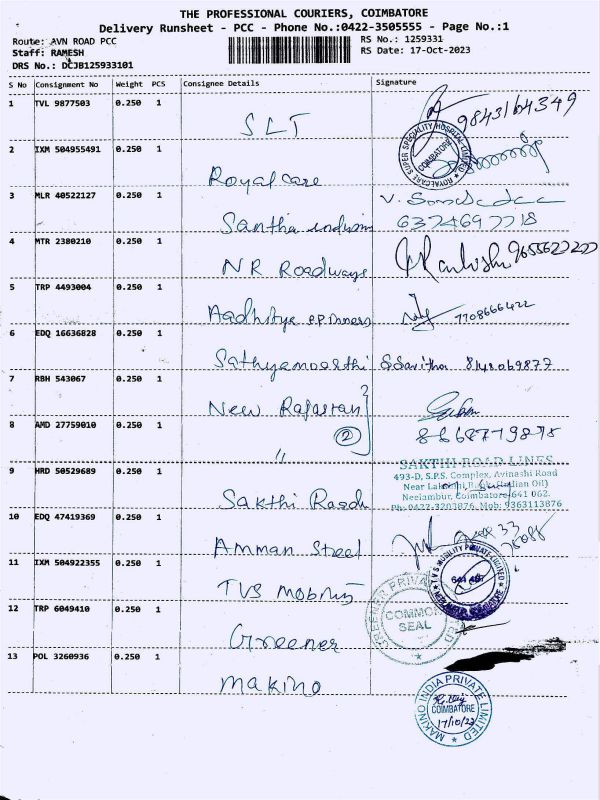 THE PROFESSIONAL COURIERS, COIMBATORE
Delivery Runsheet - PCC - Phone No.:0422-3505555 - Page No.:1
Route: AVN ROAD PCC
RS No.: 1259331
Staff: RAMESH
RS Date: 17-Oct-2023
DRS No.: DCJB125933101
S No Consignment No Weight PCS Consignee Details Signature
1 TVL 9877503 0.250 1 SLT 9843164349
2 IXM 504955491 0.250 1 Royal care
ROYALCARE SUPER SPECIALITY HOSPITAL LIMITED
COIMBATORE
3 MLR 40522127 0.250 1 Santha
6374697718
4 MTR 2380210 0.250 1 NR Roadways
5 TRP 4493004 0.250 1 Aadhitya 7708666422
6 EDQ 16636828 0.250 1 Sathyamoorthi S Savitha
7 RBH 543067 0.250 1 New Rajastan
8 AMD 27759010 0.250 1 " 2
9 HRD 50529689 0.250 1 Sakthi Roads
SAKTHI ROAD LINES
493-D, S.P.S. Complex, Avinashi Road
Near Lakshmi (Indian Oil)
Neelambur, Coimbatore-641 062.
Ph:0422-3203876, Mob: 9363113876
10 EDQ 47419369 0.250 1 Amman Steel
11 IXM 504922355 0.250 1 TVS Mobility
TVS MOBILITY PRIVATE LIMITED
12 TRP 6049410 0.250 1 Greener
GREENER PRIVATE
COMMON
SEAL
13 POL 3260936 0.250 1 Makino
MAKINO INDIA PRIVATE LIMITED
COIMBATORE
17/10/23